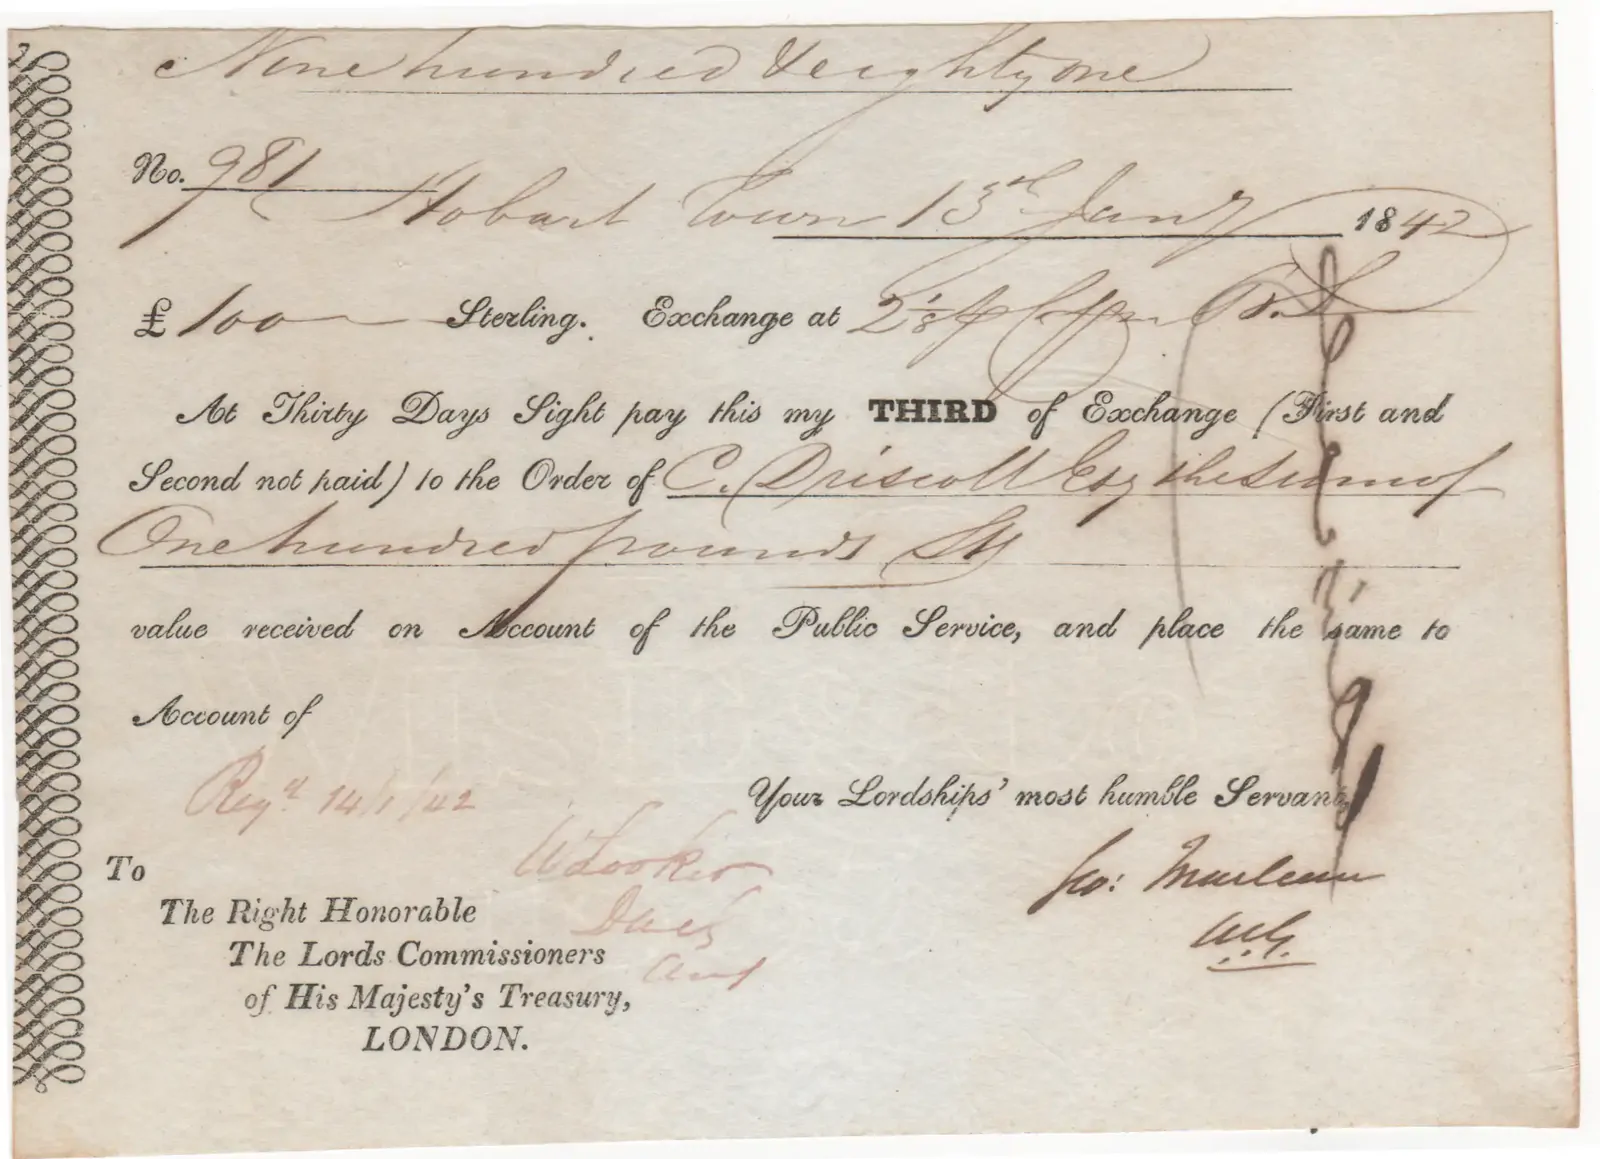 Nine hundred & eighty one
No. 981 Hobart Town 13th Jany 1842
£ 100 Sterling. Exchange at 2 1/8
At Thirty Days Sight pay this my THIRD of Exchange (First and
Second not paid) to the Order of C. Driscoll Esq the Sum of
One hundred pounds Stg
value received on Account of the Public Service, and place the same to
Account of
Regd 14/1/42
Your Lordships' most humble Servant,
To
The Right Honorable
The Lords Commissioners
of His Majesty's Treasury,
LONDON.
Geo: Maclean